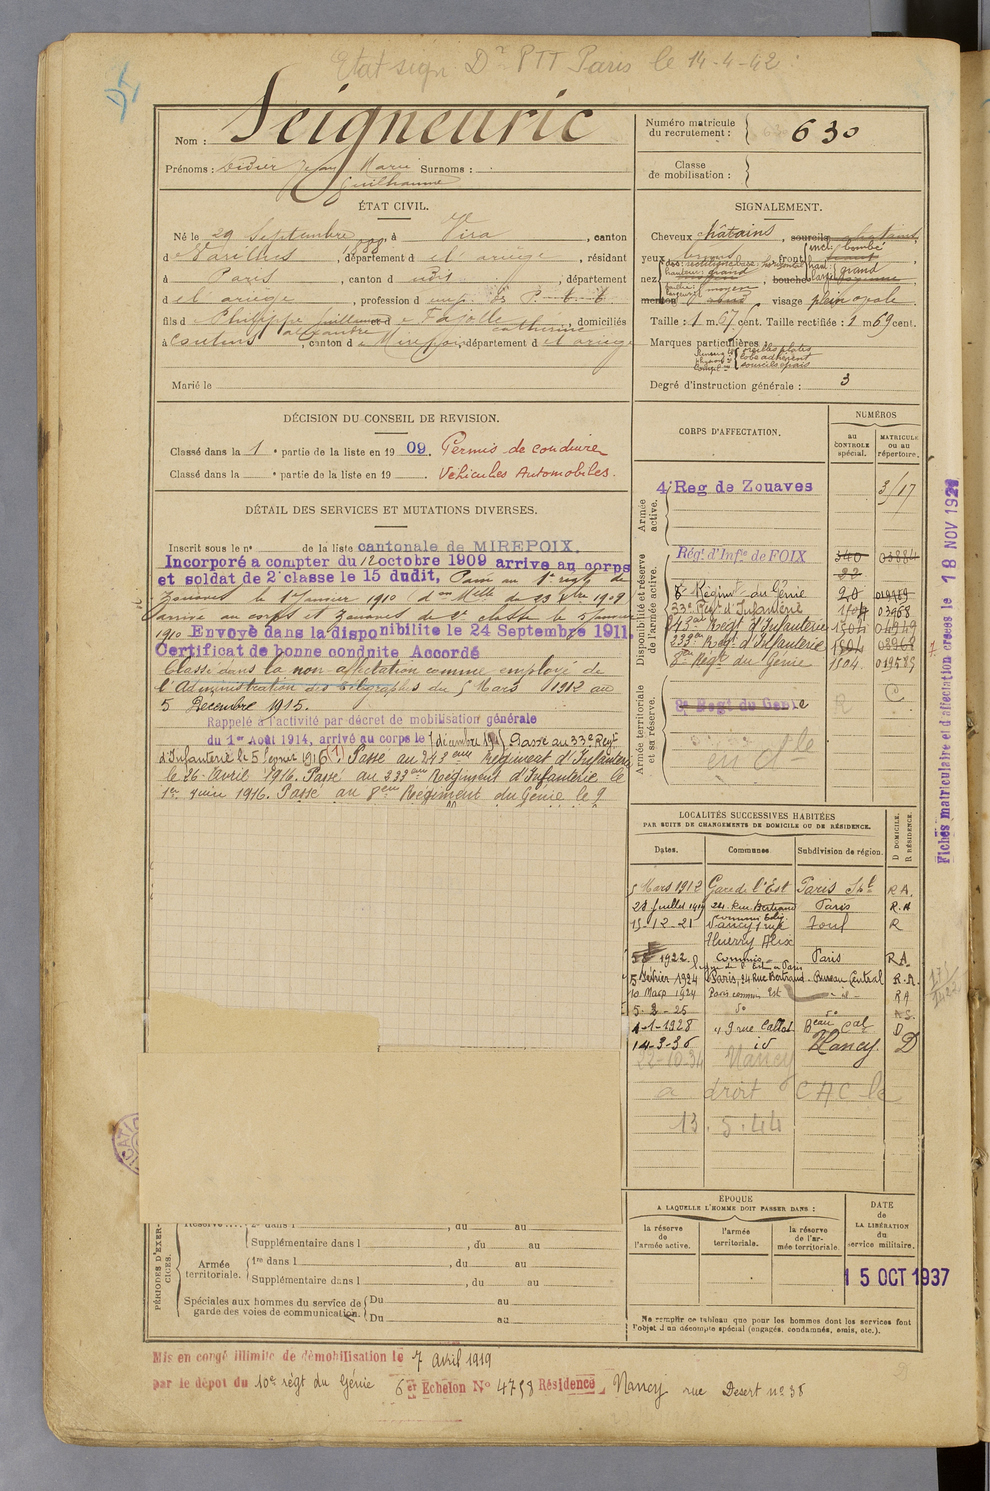 Etat sign. Dr PTT Paris le 14-4-42
Nom : Seigneuric
Prénoms : Didier Jean Marie Surnoms :
Guilhaume
Numéro matricule
du recrutement : 630
Classe
de mobilisation :
ÉTAT CIVIL.
Né le 29 Septembre 1888, à Vira, canton
d Varilhes, département d e l'ariège, résidant
à Paris, canton d udit, département
d e l'ariège, profession d emp. des P. t. t.
fils d e Philippe Guillaume Alexandre et d e Fajolle Catherine, domiciliés
à Coutens, canton d e Mirepoix, département d e l'ariège
Marié le
SIGNALEMENT.
Cheveux châtains, sourcils châtains
yeux front incl: bombé
haut: grand
nez dos: rectiligne base: horizontal
hauteur: grand
saillie: moyenne
menton visage plein ovale
Taille : 1 m. 67 cent. Taille rectifiée : 1 m 69 cent.
Marques particulières : oreilles plates
lobe adhérent
sourcils épais
Degré d'instruction générale : 3
DÉCISION DU CONSEIL DE REVISION.
Classé dans la 1 e partie de la liste en 19 09. Permis de conduire
Classé dans la e partie de la liste en 19 . Véhicules Automobiles.
DÉTAIL DES SERVICES ET MUTATIONS DIVERSES.
Inscrit sous le n° de la liste cantonale de MIREPOIX.
Incorporé a compter du 12 octobre 1909 arrive au corps
et soldat de 2e classe le 15 dudit, Passé au 4e regt de
Zouaves le 1er Janvier 1910 (don Mlle du 23 Xbre 1909
arrive au corps et Zouaves de 2e classe le 5 janvier
1910 Envoyé dans la disponibilite le 24 Septembre 1911
Certificat de bonne conduite Accordé
Classé dans la non affectation comme employé de
l'Administration des télégraphes du 5 Mars 1912 au
5 Décembre 1915.
Rappelé à l'activité par décret de mobilisation générale
du 1er Août 1914, arrivé au corps le 7 décembre 1915. Passé au 33e Regt
d'Infanterie le 5 février 1916 (1) Passé au 243eme Régiment d'Infanterie
le 26 Avril 1916. Passé au 333eme Régiment d'Infanterie le
1er Juin 1916. Passé au 8eme Régiment du Génie le 9
CORPS D'AFFECTATION.
NUMÉROS
au
CONTROLE
spécial.
MATRICULE
ou au
répertoire.
Armée
active.
4e Reg de Zouaves 3/17
Disponibilité et réserve
de l'armée active.
Régt d'Infie de FOIX 340 03884
22
8e Régiment du Génie 20
33e Régt d'Infanterie 1504 03968
243e Régt d'Infanterie 1504 04949
333e Régt d'Infanterie 1504 03968
8e Régt du Génie 1504. 019589
Armée territoriale
et sa réserve.
8e Regt du Genie R C
en dlle
Fiches matriculaire et d'affectation créées le 18 NOV 1921
LOCALITÉS SUCCESSIVES HABITÉES
PAR SUITE DE CHANGEMENTS DE DOMICILE OU DE RÉSIDENCE.
Dates. Communes. Subdivision de région. D DOMICILE. R RÉSIDENCE.
5 Mars 1912 Gare de l'Est Paris R A.
28 Juillet 1919 24. Rue Bertrand Paris R. A
15-12-21 Nancy 1 rue Thierry Alix Toul R
1922. Commis ligne de l'Est à Paris Paris R A
5 Février 1924 Paris, 24 Rue Bertrand Bureau Central R. A.
10 Mars 1924 Paris commis Est -d°- R A
5-2-25 d° d°
4-1-1928 9 rue Callot Beau Cal D
14-3-36 id Nancy. D
22-10-34 Nancy
a droit CAC le
13.5.44
ÉPOQUE
A LAQUELLE L'HOMME DOIT PASSER DANS :
la réserve
de
l'armée active.
l'armée
territoriale.
la réserve
de l'ar-
mée territoriale.
DATE
de
LA LIBÉRATION
du
service militaire.
15 OCT 1937
Ne remplir ce tableau que pour les hommes dont les services font
l'objet d'un décompte spécial (engagés, condamnés, omis, etc.).
PÉRIODES D'EXER-
CICES.
Réserve 2e dans l , du au
Supplémentaire dans l , du au
Armée
territoriale.
1re dans l , du au
Supplémentaire dans l , du au
Spéciales aux hommes du service de
garde des voies de communication.
Du au
Du au
Mis en congé illimité de démobilisation le 7 avril 1919
par le dépôt du 10e régt du Génie 6e Echelon N° 4758 Résidence, Nancy rue Desert n° 38